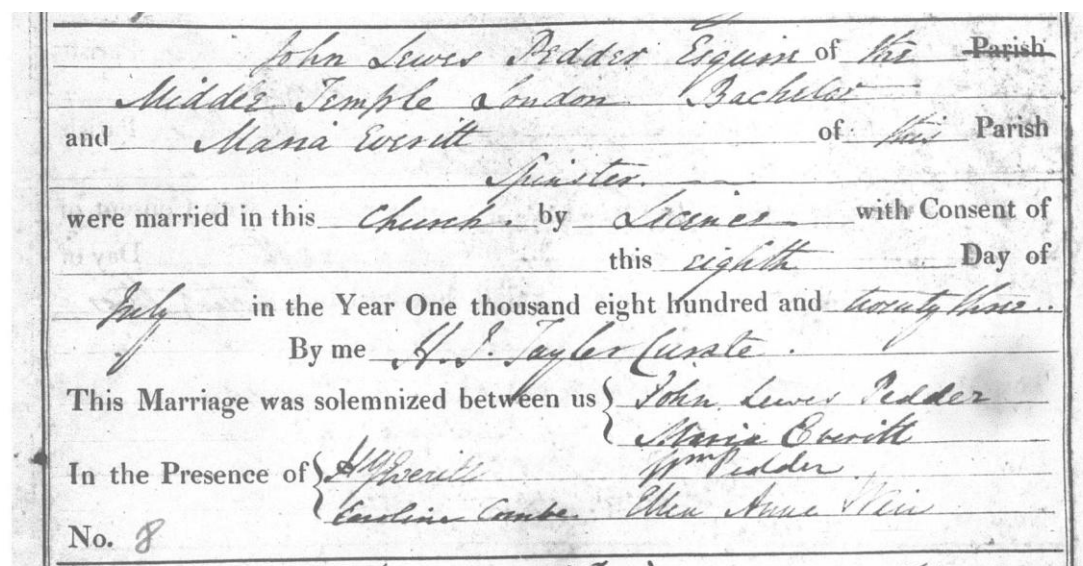 John Lewes Pedder Esquire of the Parish
Middle Temple London Bachelor
and Maria Everitt of this Parish
Spinster.
were married in this Church by Licence with Consent of
this eighth Day of
July in the Year One thousand eight hundred and twenty three.
By me H. J. Tayler Curate.
This Marriage was solemnized between us John Lewes Pedder
Maria Everitt
In the Presence of Hy Everitt Wm Pedder
Caroline Combe. Ellen Anne
No. 8